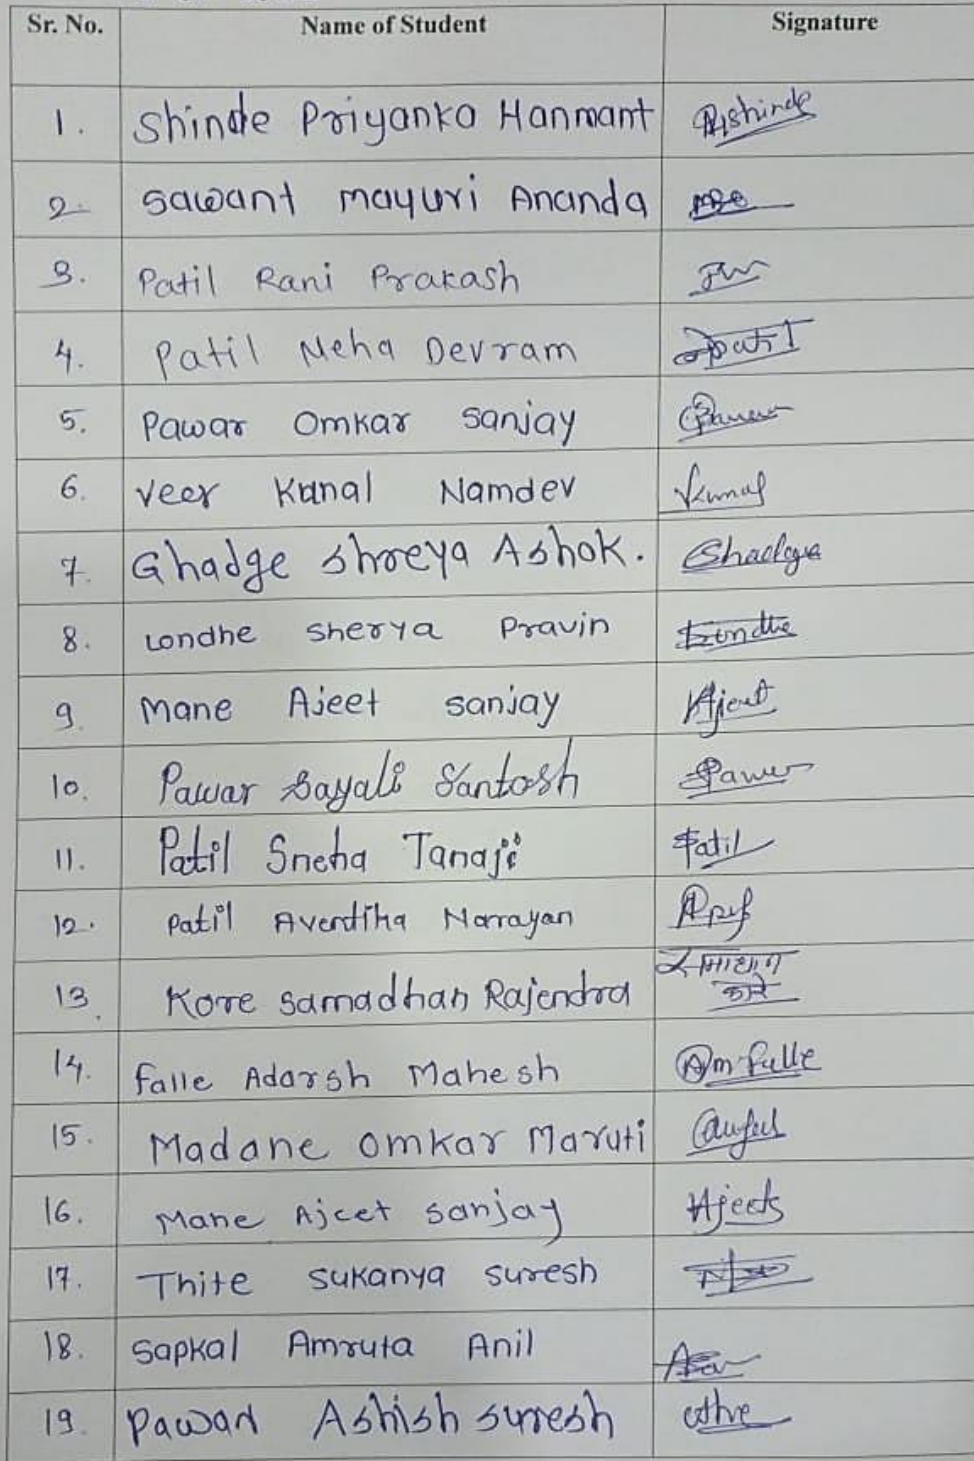 Sr. No. Name of Student Signature
1. Shinde Priyanka Hanmant PHshinde
2. Sawant Mayuri Ananda
3. Patil Rani Prakash
4. Patil Neha Devram Patil
5. Pawar Omkar Sanjay
6. Veer Kunal Namdev Kunal
7. Ghadge Shreya Ashok. Ghadge
8. Londhe Sherya Pravin Londhe
9. Mane Ajeet Sanjay Ajeet
10. Pawar Sayali Santosh Pawar
11. Patil Sneha Tanaji Patil
12. Patil Aventika Narrayan
13. Kore Samadhan Rajendra समाधान
कोरे
14. Falle Adarsh Mahesh Am Falle
15. Madane Omkar Maruti
16. Mane Ajeet Sanjay Ajeets
17. Thite Sukanya Suresh
18. Sapkal Amruta Anil
19. Pawar Ashish Suresh